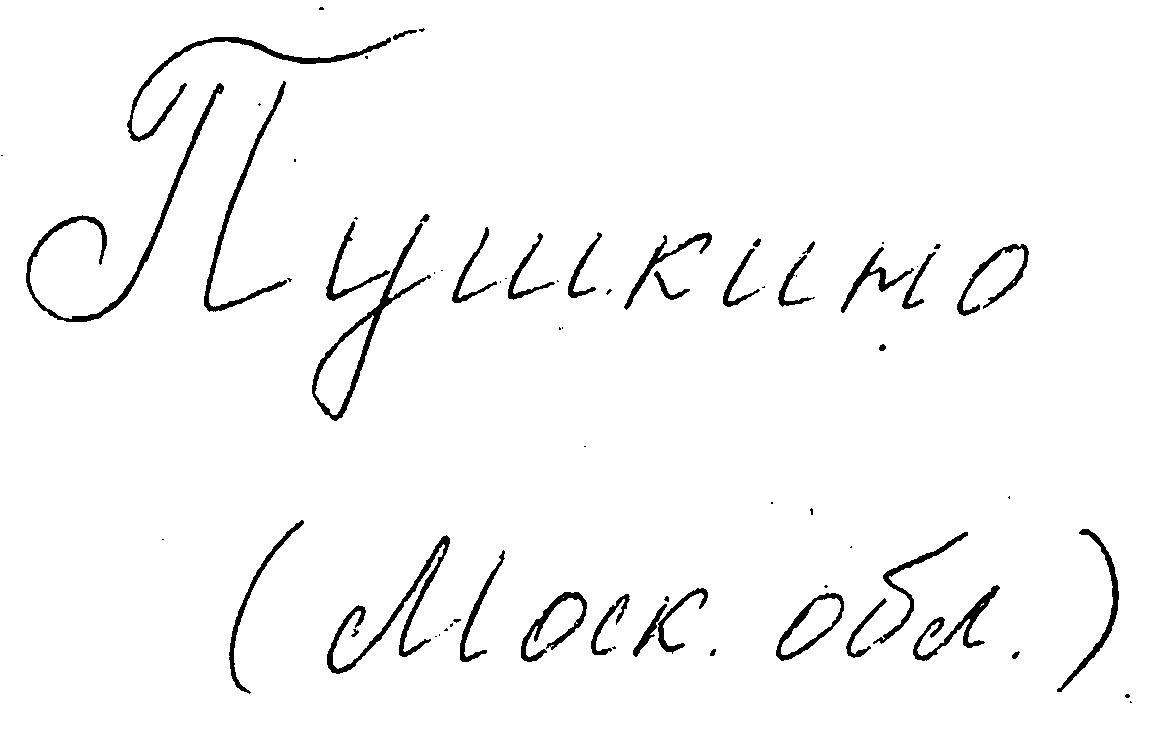 Пушкино
(Моск. обл.)